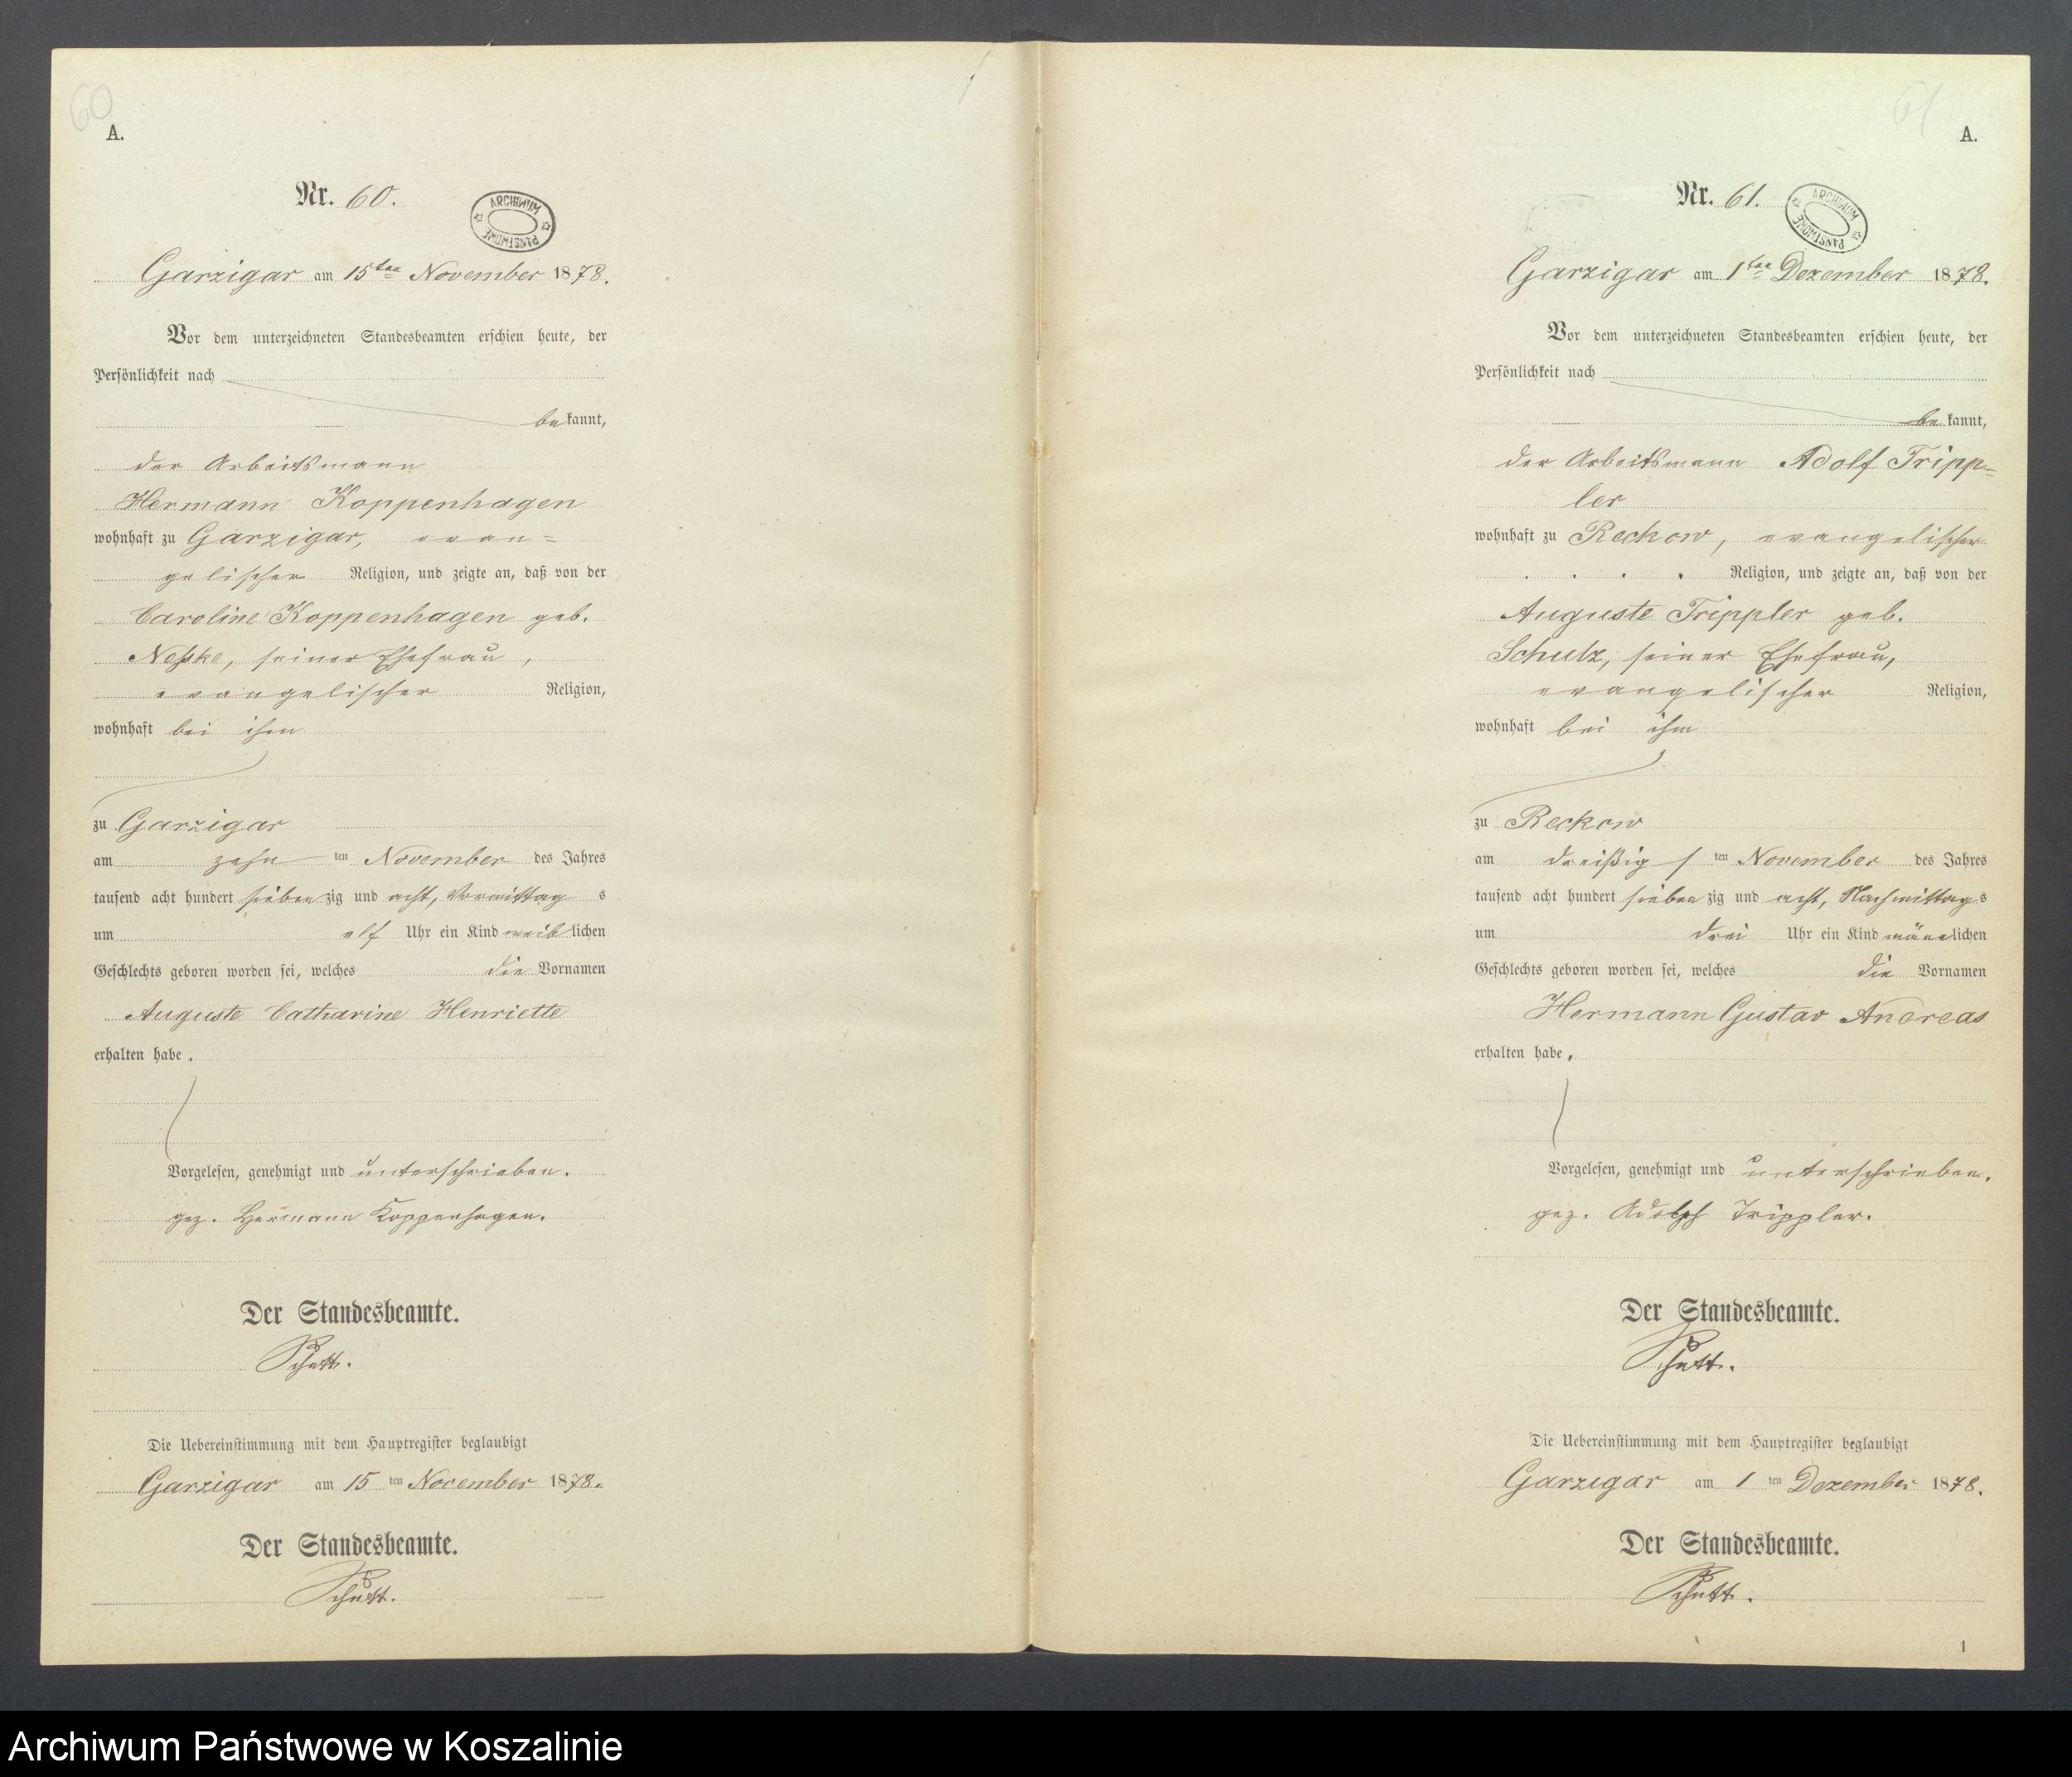 60
A.
Nr. 60.
ARCHIWUM PAŃSTWOWE
Garzigar am 15ten November 1878.
Vor dem unterzeichneten Standesbeamten erschien heute, der
Persönlichkeit nach
bekannt,
der Arbeitsmann
Hermann Koppenhagen
wohnhaft zu Garzigar, evan=
gelischer Religion, und zeigte an, daß von der
Caroline Koppenhagen geb.
Neßke, seiner Ehefrau,
evangelischer Religion,
wohnhaft bei ihm
zu Garzigar
am zehn ten November des Jahres
tausend acht hundert siebenzig und acht, Vormittag s
um elf Uhr ein Kind weiblichen
Geschlechts geboren worden sei, welches die Vornamen
Auguste Catharine Henriette
erhalten habe.
Vorgelesen, genehmigt und unterschrieben.
gez. Hermann Koppenhagen.
Der Standesbeamte.
Schütt.
Die Uebereinstimmung mit dem Hauptregister beglaubigt
Garzigar am 15 ten November 1878.
Der Standesbeamte.
Schütt.
61
A.
Nr. 61.
ARCHIWUM PAŃSTWOWE
Garzigar am 1ten Dezember 1878.
Vor dem unterzeichneten Standesbeamten erschien heute, der
Persönlichkeit nach
bekannt,
der Arbeitsmann Adolf Tripp=
ler
wohnhaft zu Reckow, evangelischer
Religion, und zeigte an, daß von der
Auguste Trippler geb.
Schulz, seiner Ehefrau,
evangelischer Religion,
wohnhaft bei ihm
zu Reckow
am dreißig s ten November des Jahres
tausend acht hundert siebenzig und acht, Nachmittag s
um drei Uhr ein Kind männlichen
Geschlechts geboren worden sei, welches die Vornamen
Hermann Gustav Andreas
erhalten habe.
Vorgelesen, genehmigt und unterschrieben.
gez. Adolph Trippler.
Der Standesbeamte.
Schütt.
Die Uebereinstimmung mit dem Hauptregister beglaubigt
Garzigar am 1 ten Dezember 1878.
Der Standesbeamte.
Schütt.
1
Archiwum Państwowe w Koszalinie